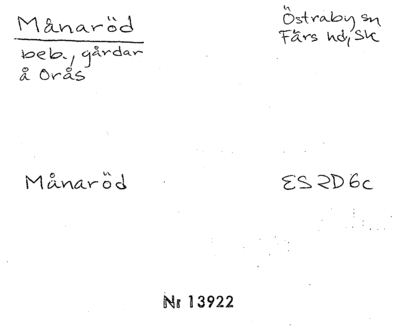 Månaröd
beb., gårdar
å Orås
Östraby sn
Färs hd, Sk
Månaröd
ES 2D6c
Nr 13922